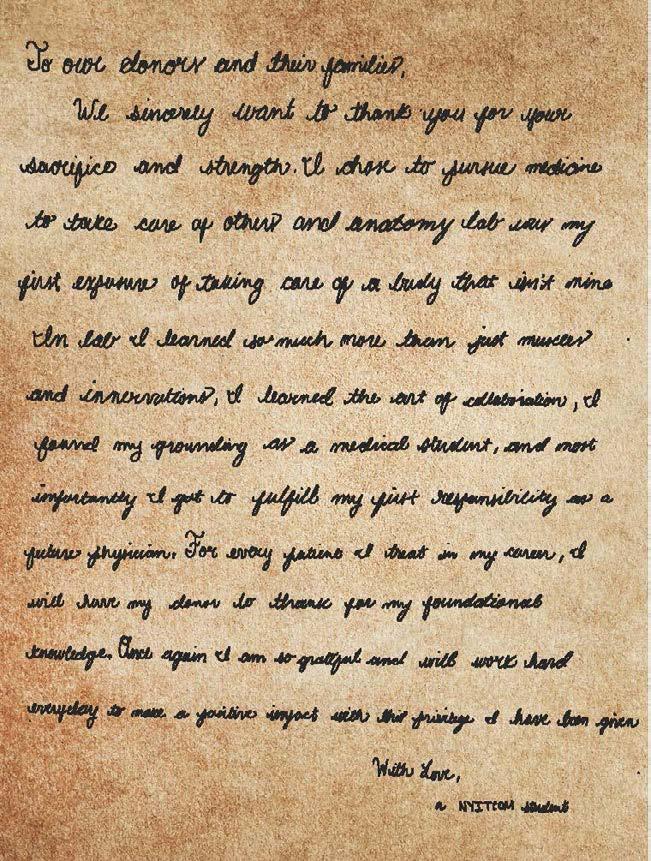 To our donors and their families,
We sincerely want to thank you for your
sacrifice and strength. I chose to pursue medicine
to take care of others and anatomy lab was my
first exposure of taking care of a body that isn't mine
In lab I learned so much more than just muscles
and innervations, I learned the art of collaboration, I
found my grounding as a medical student, and most
importantly I got to fulfill my first responsibility as a
future physician. For every patient I treat in my career, I
will have my donor to thank for my foundational
knowledge. Once again I am so grateful and will work hard
everyday to make a positive impact with this privilege I have been given
With Love,
a NYITCOM student